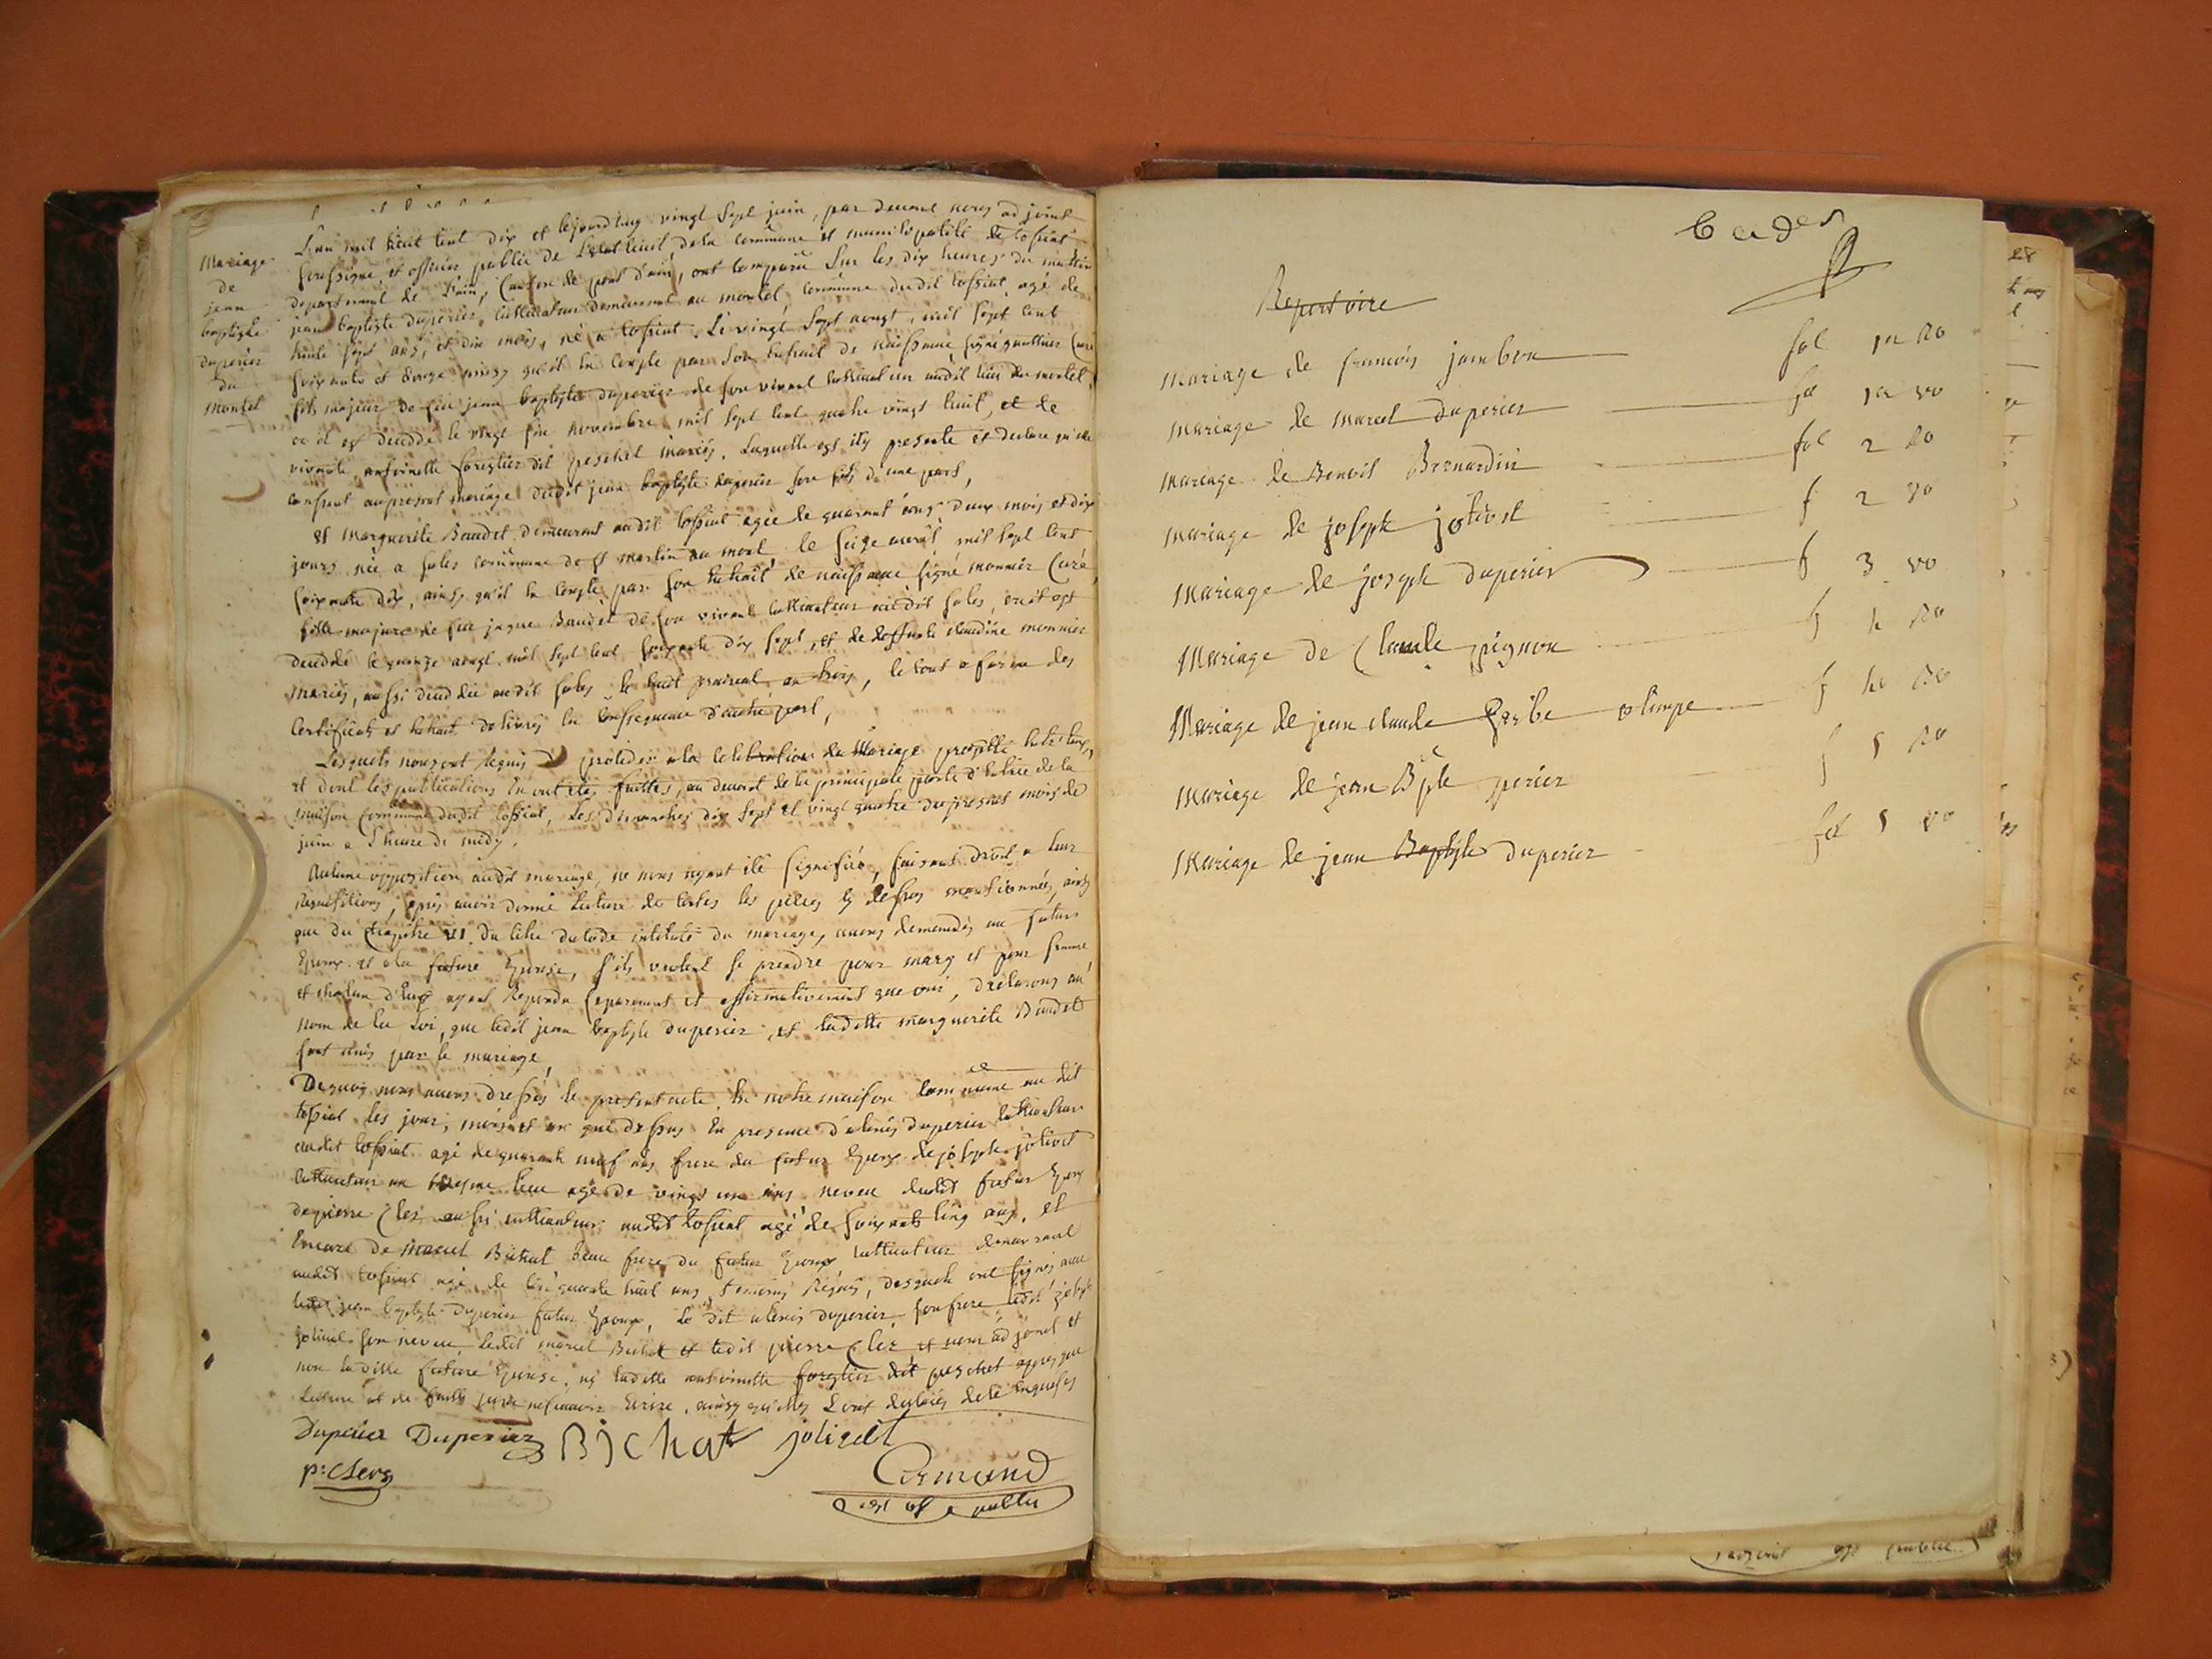 Mariage
de
jean
baptiste
duperier
du
montel
L'an mil huit cent dix et lejourdhuy vingt sept juin, par devant nous adjoint
soussigné et officier public de L'etat civil dela commune et municipalité de tossiat
departement de L'ain, Canton de pont d'ain, ont comparu sur les dix heures du matin
jean baptiste duperier, cultivateur demeurant au montel, commune dudit tossiat, agé de
trente sept ans, et dix mois, né a tossiat Le vingt sept aougt, mil sept cent
soixante et douze ainsy qu'il en conste par son extrait de naissance signé gauthier Curé
fils majeur de feu jean baptiste duperier de son vivant cultivateur audit lieu du montel,
ou il est decedé le vingt six novembre mil sept cent quatre vingt huit, et de
vivante antoinette forestier dit peschet mariés. Laquelle est icy presente et declare qu'elle
consent aupresent mariage dudit jean baptiste duperier son fils d'une part,
et marguerite Baudet demeurant audit tossiat agée de quarant ans deux mois et dix
jours née a sales commune de st martin au mont le seize avril mil sept cent
soixante dix, ainsy qu'il en conste par son extrait de naissance signé monnier Curé,
fille majure de feu jaque Baudet de son vivant cultivateur audit sales, ou il est
decedé le quinze aougt mil sept cent soixante dix sept, et de deffunte claudine monnier
mariés, aussi decedée audit sales le huit prairial an trois, le tout a forme des
certificats et extrait delivrés en conssequence d'autre part,
Lesquels nous ont requis de proceder ala celebration du Mariage projetté entr'eux,
et dont les publications en ont étés faittes, au devant de la principale porte d'entrée de la
maison commune dudit tossiat, Les dimanches dix sept et vingt quatre du present mois de
juin a L'heure de midy.
Aucune opposition audit mariage, ne nous ayant été signifiée, faisant droit a leur
requisitions, apres avoir donné Lecture de toutes les pieces cy dessus mentionnées ainsy
que du Chapitre VI. du titre du code intitulé du mariage, avons demandés au futur
Epoux et a la future Epouse, s'ils veulent se prendre pour mary et pour femme
et chacun d'eux ayant Repondu separement et affirmativement que oui, declarons au
nom de La Loi, que ledit jean baptiste duperier, et ladite marguerite Baudet
sont unis par le mariage,
Dequoy nous avons dressés le present acte. En notre maison commune au dit
tossiat les jour, mois et an que dessus En presence d'alexis duperier cultivateur
audit tossiat agé de quarante neuf ans frere du futur Epoux de joseph jolivet
cultivateur au mesme lieu agé de vingt un ans neveu dudit futur Epoux
depierre Clerc aussi cultivateur audit tossiat agé de soixante cinq ans, et
Encore de marcel Bichat beau frere du futur Epoux cultivateur demeurant
audit tossiat agé de cinquante huit ans, temoins Requis, desquels ont signés avec
ledit jean baptiste duperier futur Epoux, le dit alexis duperier son frere ledit joseph
jolivet son neveu, ledit marcel Bichat et ledit pierre Clerc et nous adjoint et
non ladite future Epouse, ny ladite antoinette forestier dit peschet apres que
Lecture ait été faitte pour ne scavoir Ecrire, ainsy qu'elles L'ont declarés dece enquises
Duperier Duperier Bichat jolivet
p: Clerc
Armand
adjt off public
Repertoire
mariage de francois jambon fol 1er Ro
mariage de marcel duperier fol 1er vo
mariage de Benoit Bernardin fol 2 Ro
mariage de joseph jolivet f 2 vo
mariage de joseph duperier f 3 vo
Mariage de Claude pignon f 4 Ro
Mariage de jean claude olimpe f
mariage de jean Bpte perier f 5 Ro
Mariage de jean Baptiste duperier fol 5 vo
adjoint off public